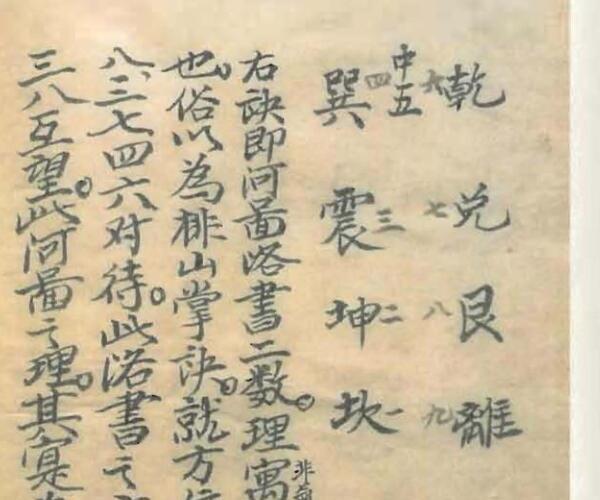 乾六 兑七 艮八 離九
中五
巽四 震三 坤二 坎一
右訣即河啚洛書二数。理寓
非
也。俗以為排山掌訣。就方
八、二七四六对待。此洛書之
三八互望。此河啚之理。其寔